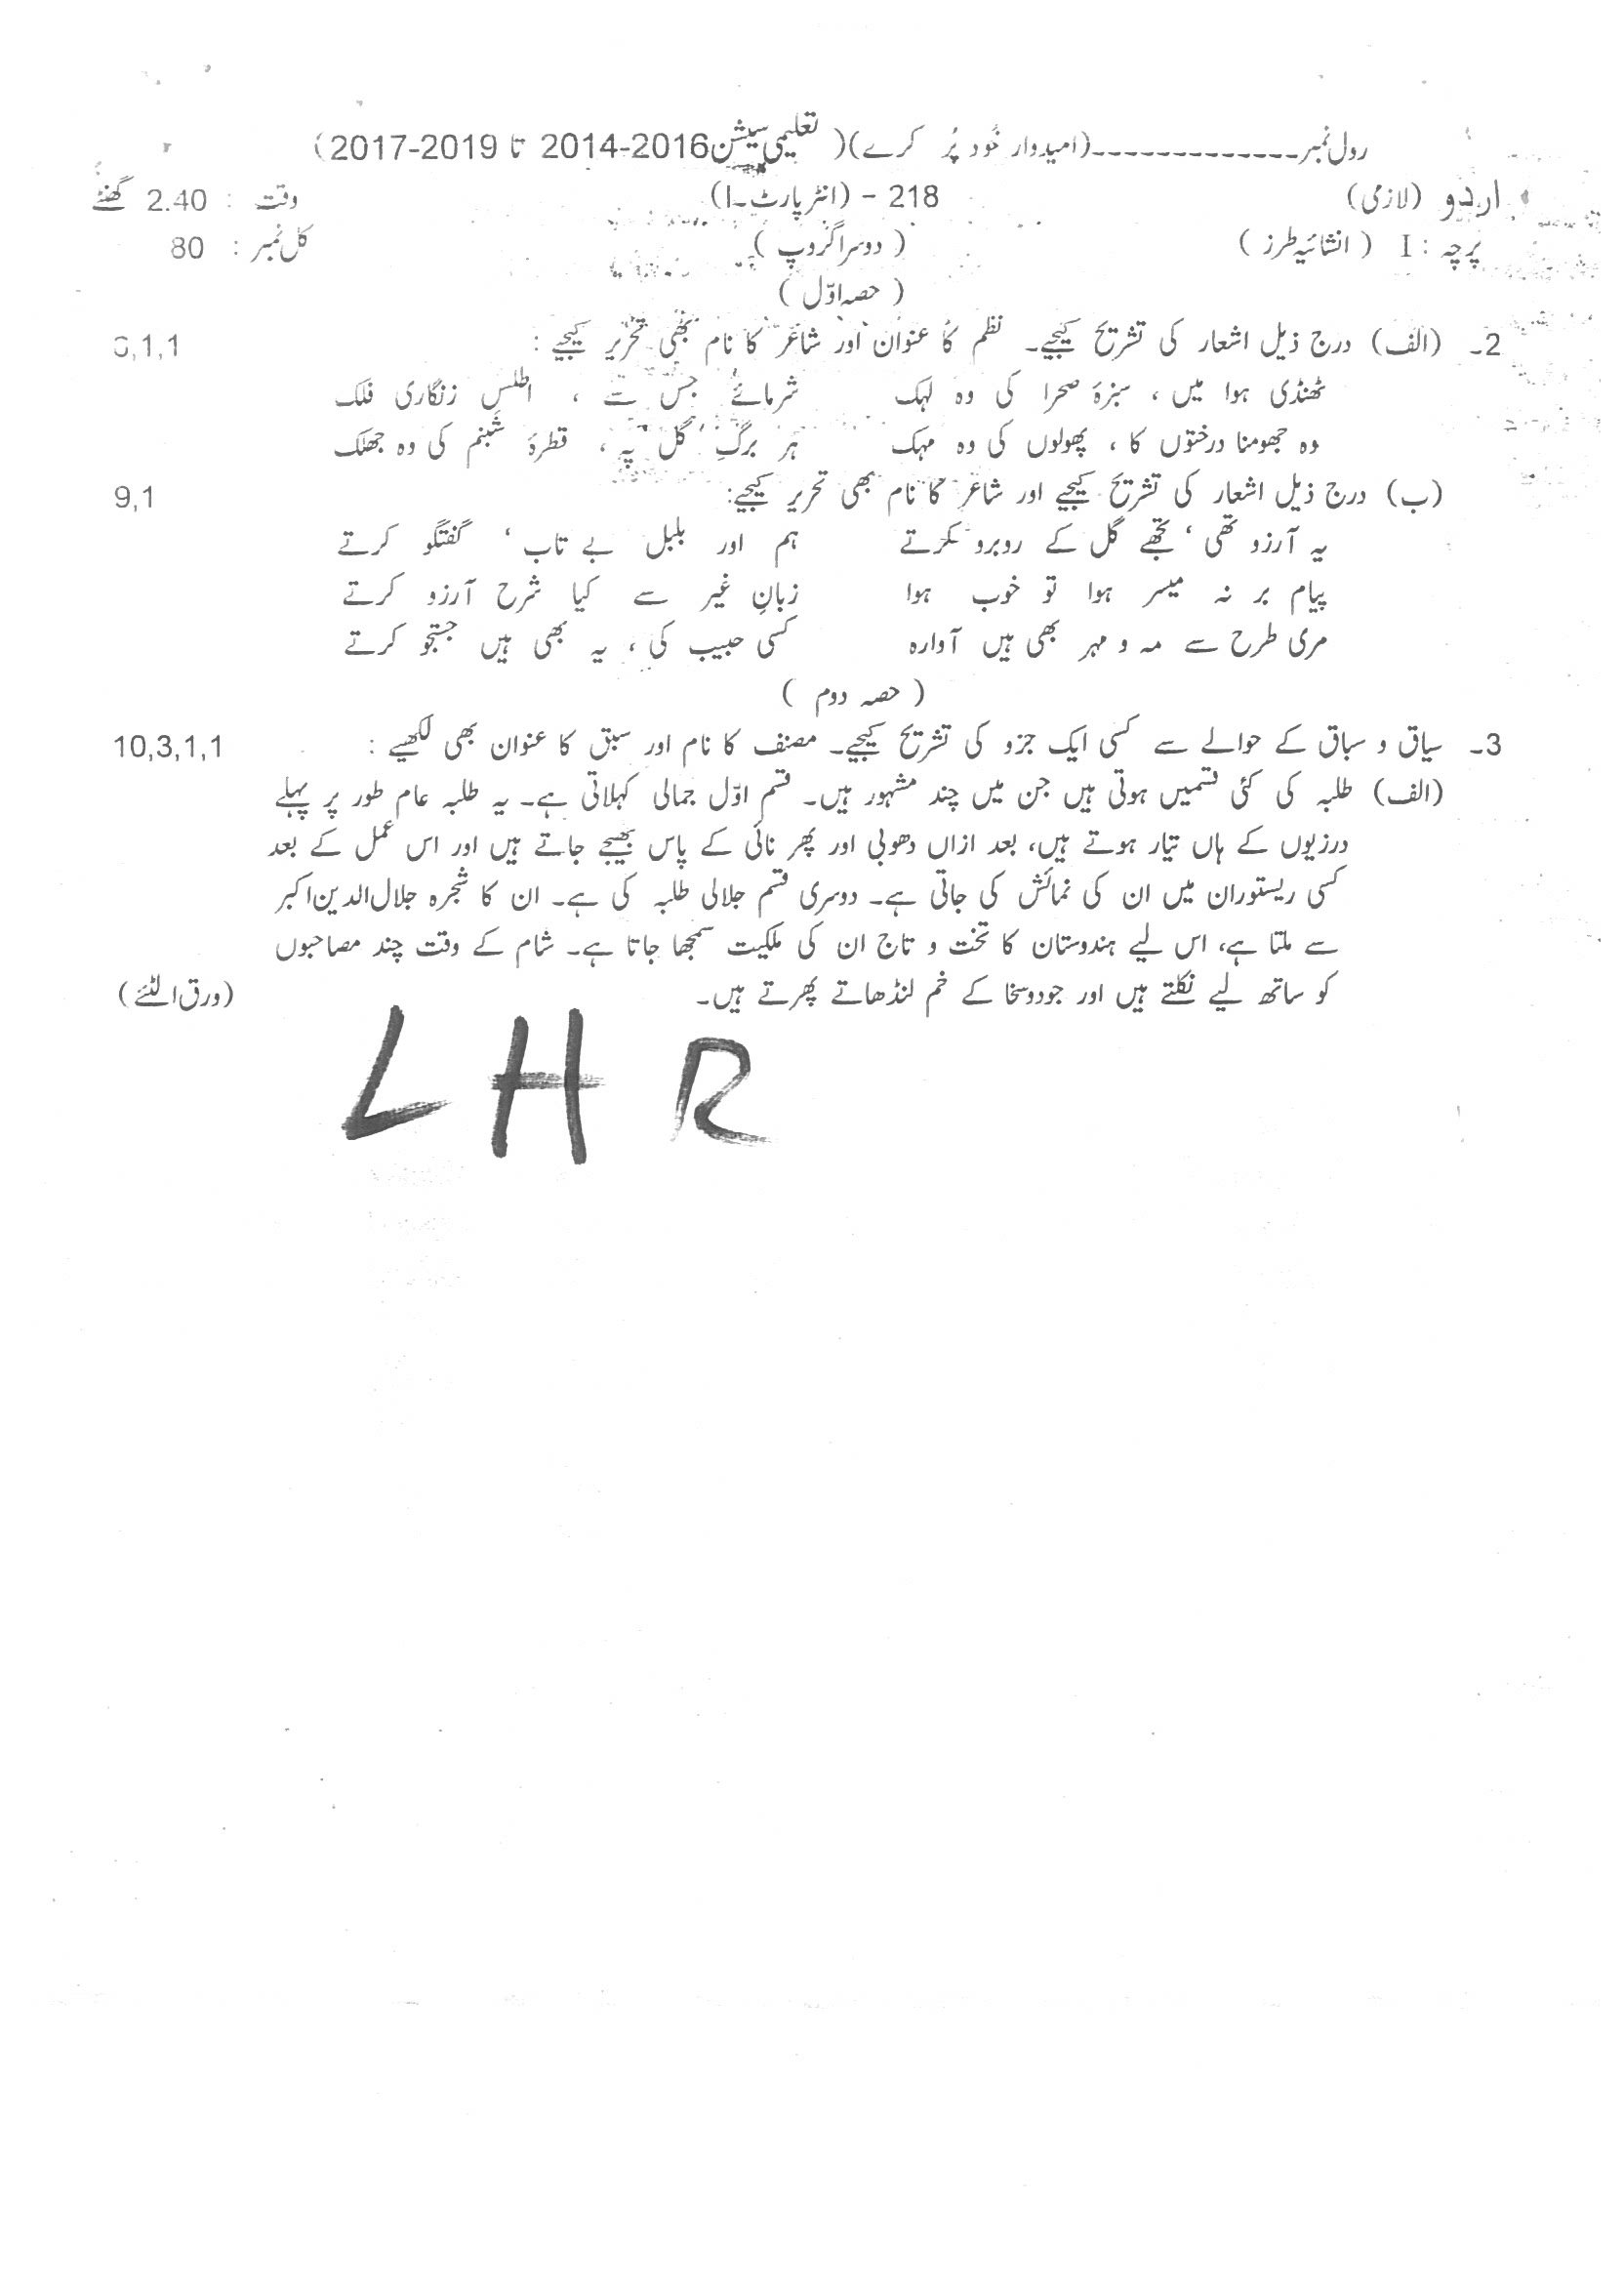 رول نمبر-------------(امیدوار خُود پُر کرے)( تعلیمی سیشن2016-2014 تا 2019-2017)
اردو (لازمی) 218 - (انٹر پارٹ-I) وقت : 2.40 گھنٹے
پرچہ : I ( انشائیہ طرز ) ( دوسرا گروپ ) کل نمبر : 80
( حصہ اوّل )
2۔ (الف) درج ذیل اشعار کی تشریح کیجیے۔ نظم کا عنوان اور شاعر کا نام بھی تحریر کیجیے : ,1,1
ٹھنڈی ہوا میں ، سبزۂ صحرا کی وہ لہک شرمائے جس سے ، اطلسِ زنگاری فلک
وہ جھومنا درختوں کا ، پھولوں کی وہ مہک ہر برگِ گل پہ ، قطرۂ شبنم کی وہ جھلک
(ب) درج ذیل اشعار کی تشریح کیجیے اور شاعر کا نام بھی تحریر کیجیے: 9,1
یہ آرزو تھی ، تجھے گل کے روبرو کرتے ہم اور بلبل بے تاب ، گفتگو کرتے
پیام بر نہ میسر ہوا تو خوب ہوا زبانِ غیر سے کیا شرح آرزو کرتے
مری طرح سے مہ و مہر بھی ہیں آوارہ کسی حبیب کی ، یہ بھی ہیں جستجو کرتے
( حصہ دوم )
3۔ سیاق و سباق کے حوالے سے کسی ایک جزو کی تشریح کیجیے۔ مصنف کا نام اور سبق کا عنوان بھی لکھیے : 10,3,1,1
(الف) طلبہ کی کئی قسمیں ہوتی ہیں جن میں چند مشہور ہیں۔ قسم اوّل جمالی کہلاتی ہے۔ یہ طلبہ عام طور پر پہلے
درزیوں کے ہاں تیار ہوتے ہیں، بعد ازاں دھوبی اور پھر نائی کے پاس بھیجے جاتے ہیں اور اس عمل کے بعد
کسی ریستوران میں ان کی نمائش کی جاتی ہے۔ دوسری قسم جلالی طلبہ کی ہے۔ ان کا شجرہ جلال الدین اکبر
سے ملتا ہے، اس لیے ہندوستان کا تخت و تاج ان کی ملکیت سمجھا جاتا ہے۔ شام کے وقت چند مصاحبوں
کو ساتھ لیے نکلتے ہیں اور جودوسخا کے خم لنڈھاتے پھرتے ہیں۔ (ورق الٹئے)
LHR